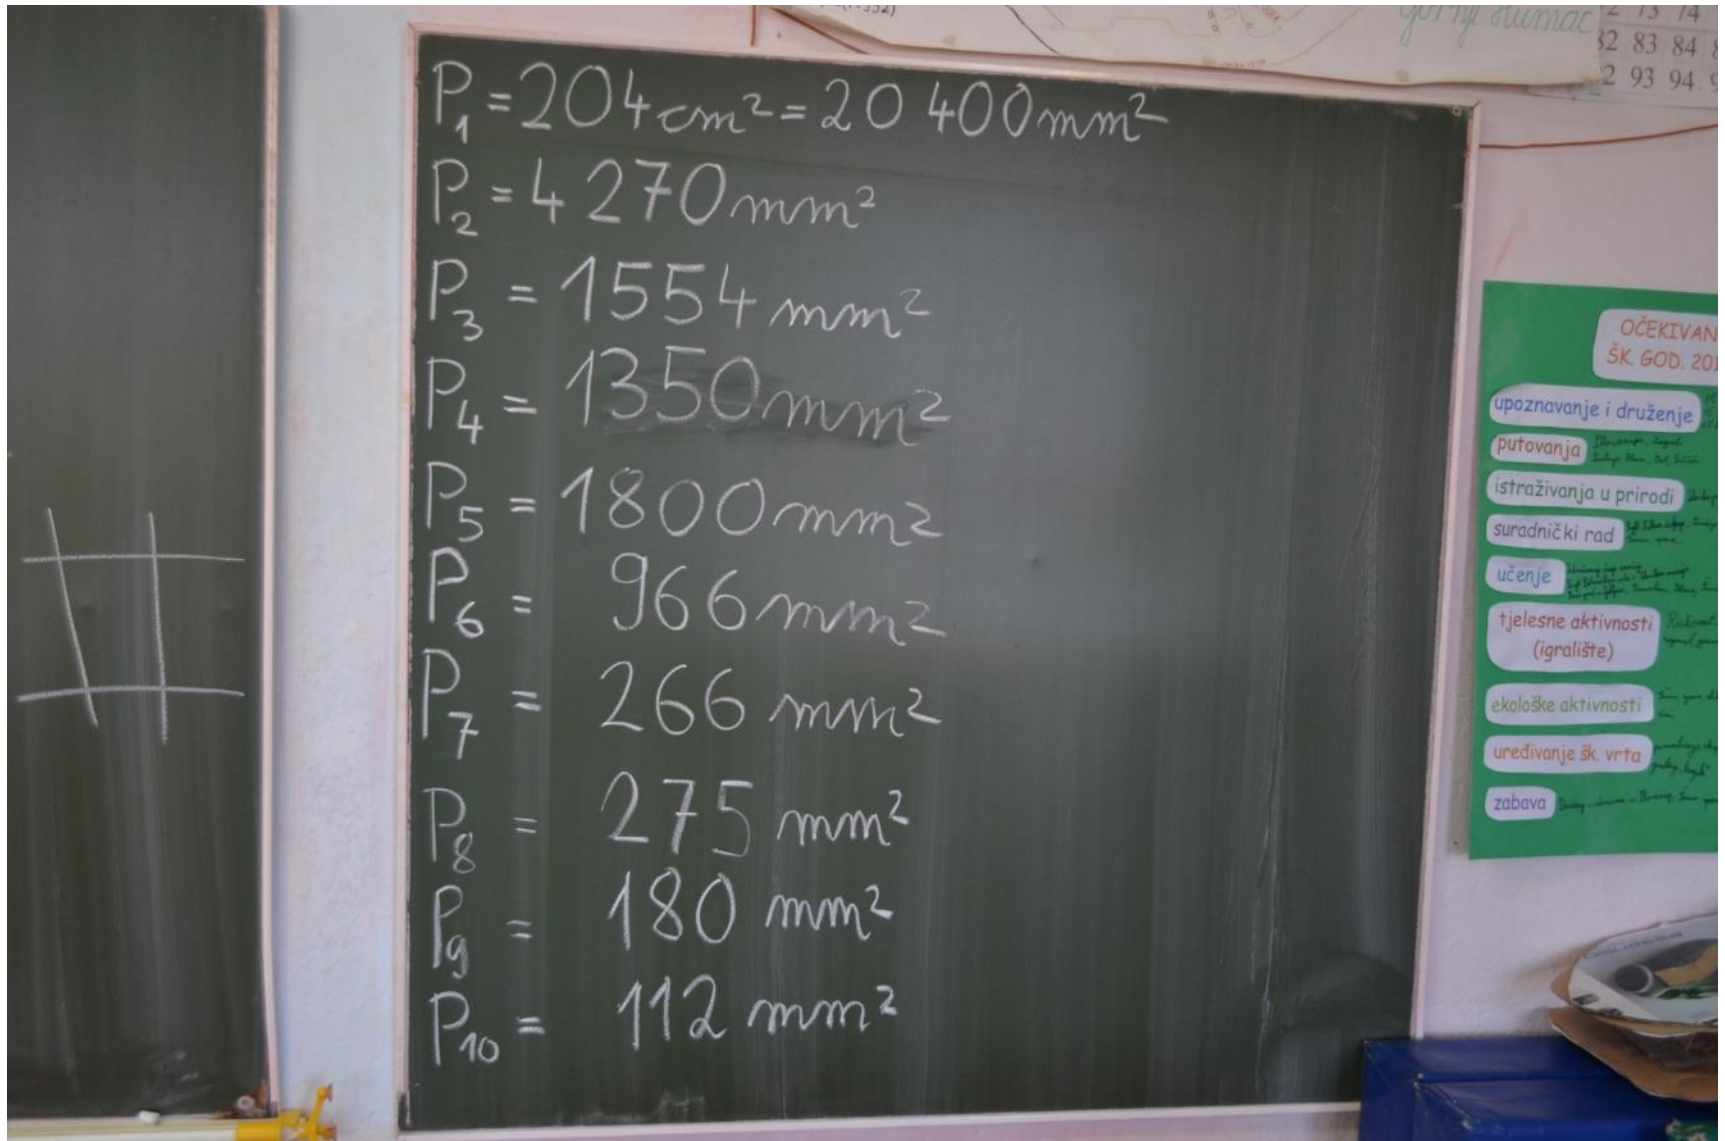 P₁ = 204 cm² = 20 400 mm²
P₂ = 4 270 mm²
P₃ = 1554 mm²
P₄ = 1350 mm²
P₅ = 1800 mm²
P₆ = 966 mm²
P₇ = 266 mm²
P₈ = 275 mm²
P₉ = 180 mm²
P₁₀ = 112 mm²
Gornji Humac
73 74
82 83 84
93 94
OČEKIVAN
ŠK. GOD. 201
upoznavanje i druženje
putovanja
istraživanja u prirodi
suradnički rad
učenje
tjelesne aktivnosti
(igralište)
ekološke aktivnosti
uređivanje šk. vrta
zabava